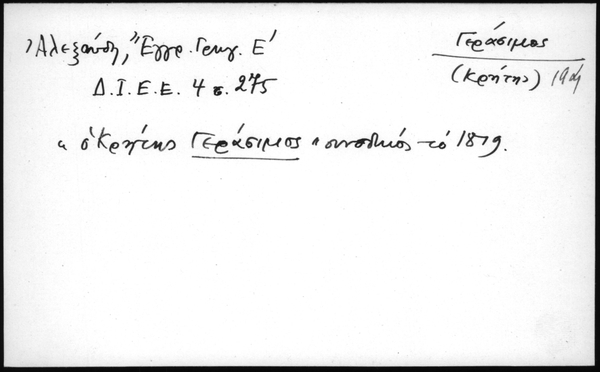 Γεράσιμος
(Κρήτης) 19ος
Ἀλεξούδη, "Ἔγγρ. Γρηγ. Ε'
Δ.Ι.Ε.Ε. 4 σ. 275
"ὁ Κρήτης Γεράσιμος" συνοδικός τὸ 1819.